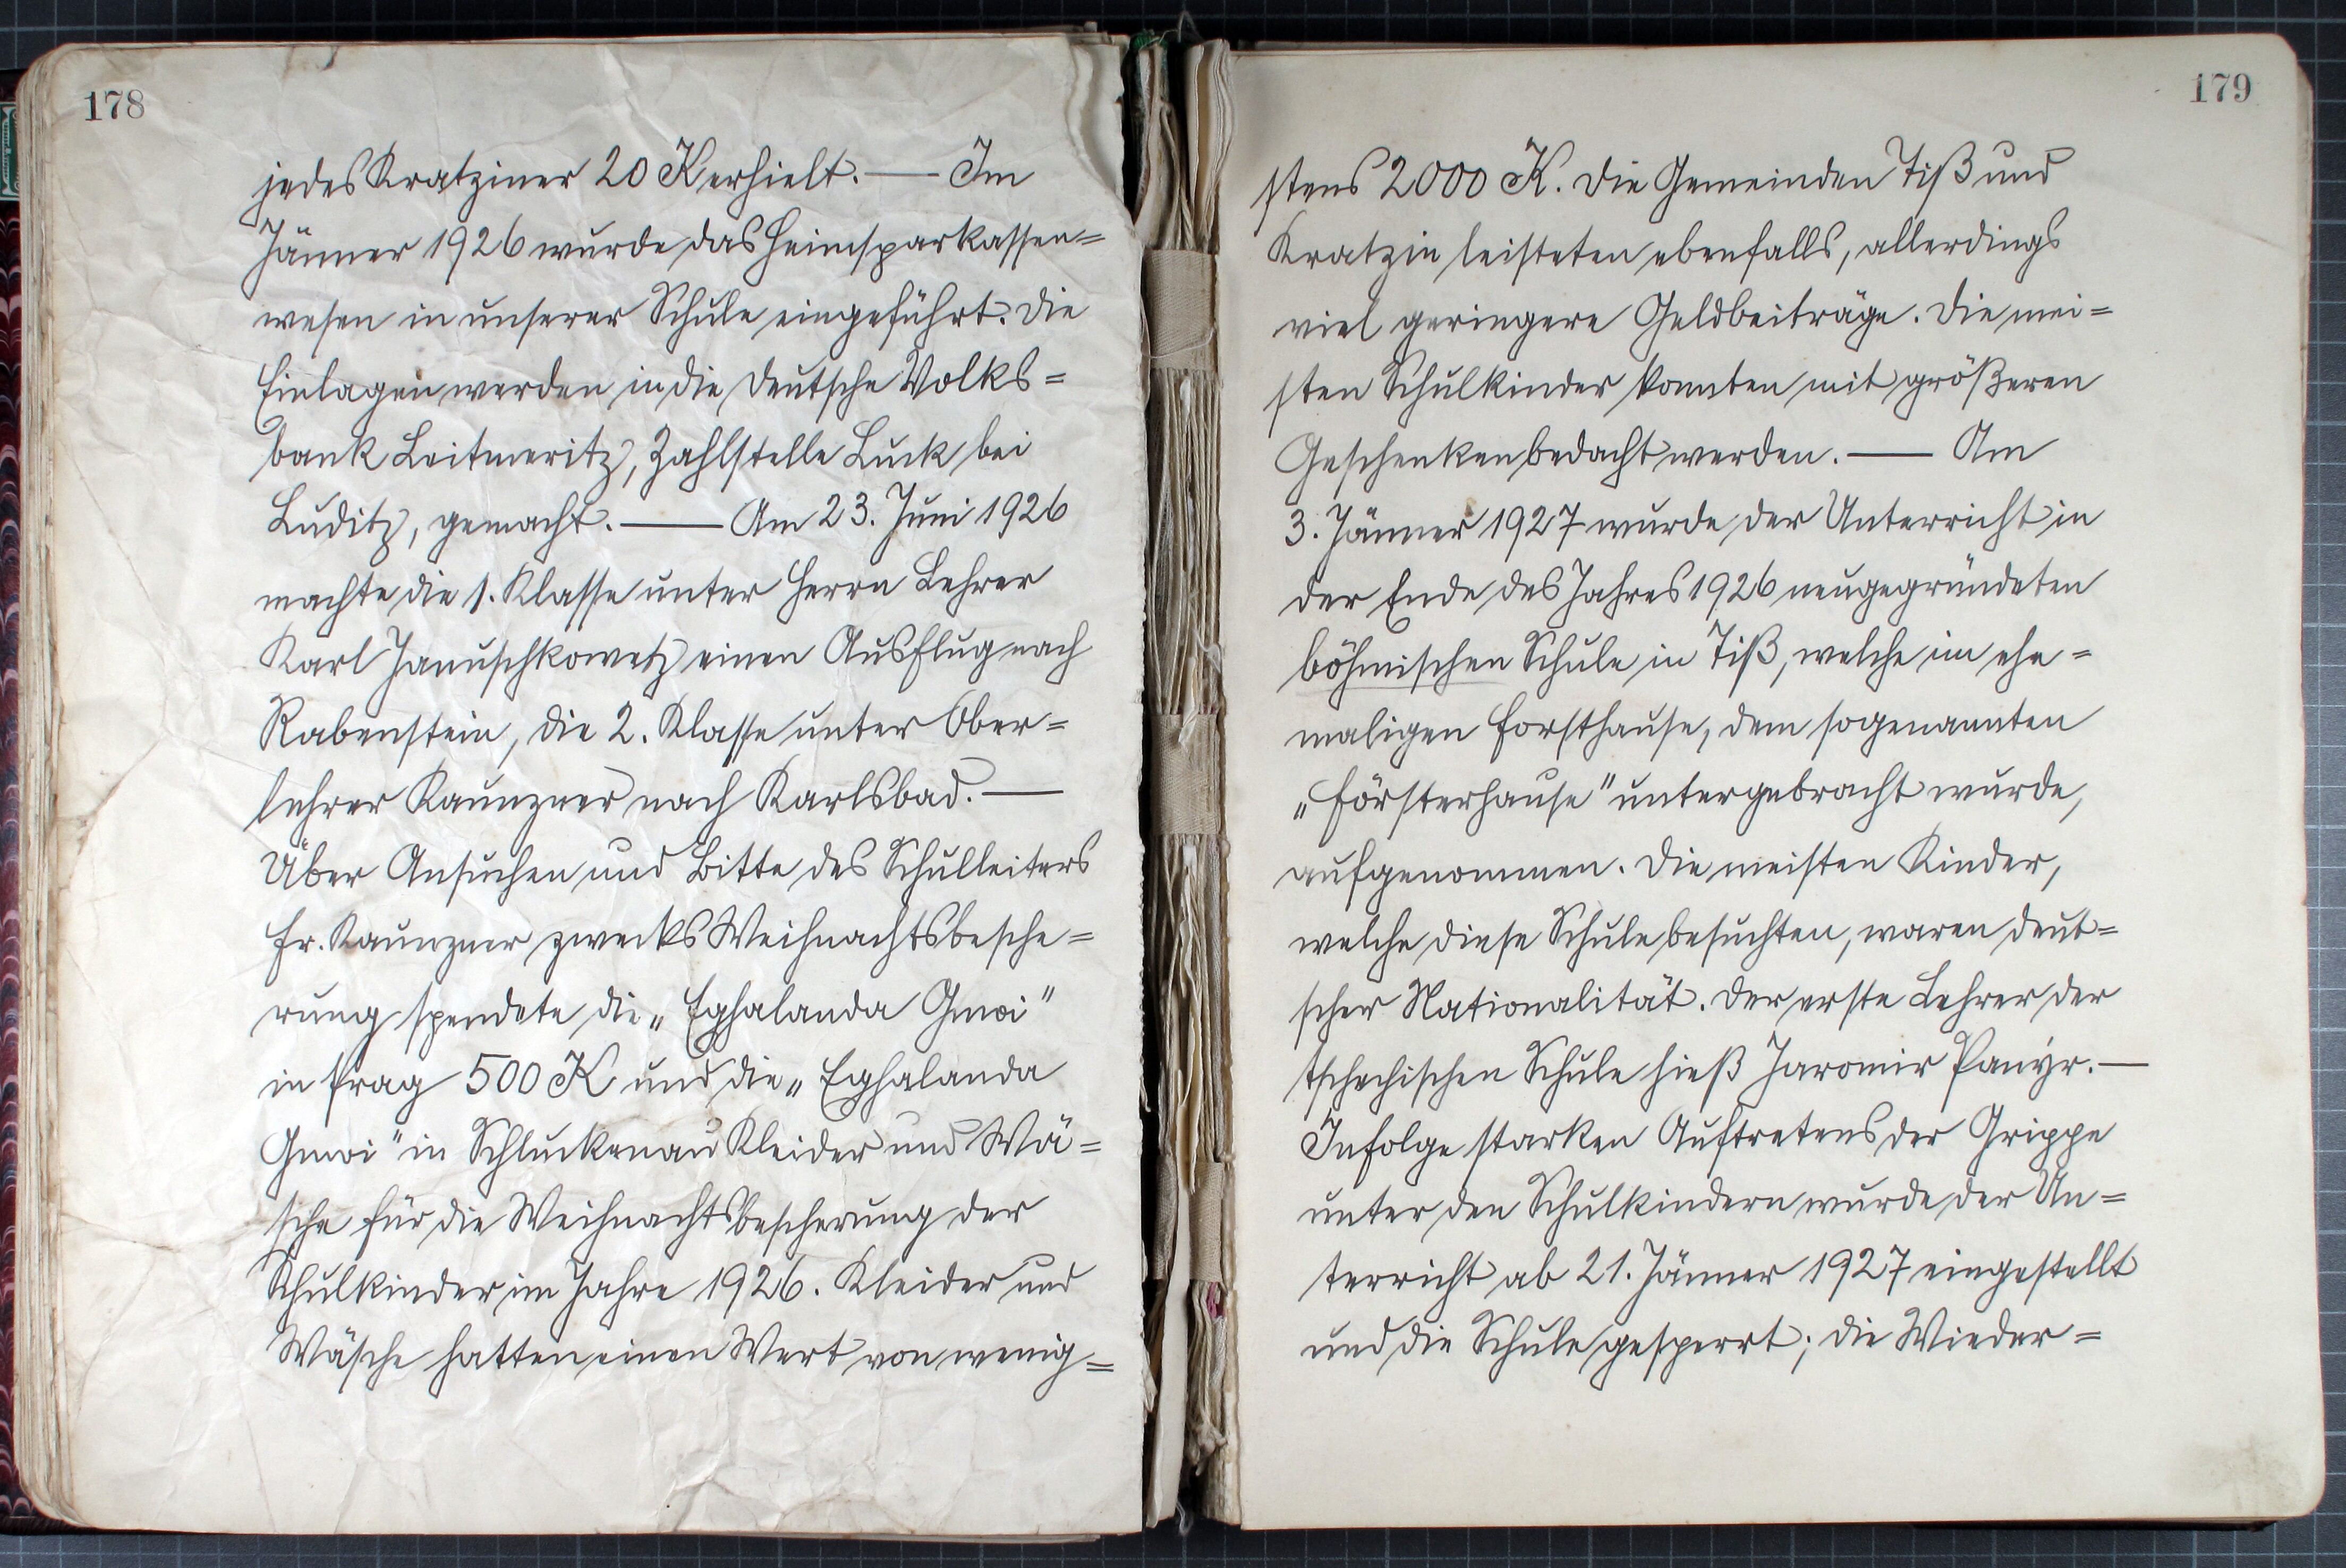 178
jedes Kratziner 20 K erhielt. — Im
Jänner 1926 wurde das Heimsparkassen=
wesen in unserer Schule eingeführt. Die
Einlagen werden in die Deutsche Volks=
bank Leitmeritz, Zahlstelle Luck bei
Luditz, gemacht. — Am 23. Juni 1926
machte die 1. Klasse unter Herrn Lehrer
Karl Januschkowetz einen Ausflug nach
Rabenstein, die 2. Klasse unter Ober=
lehrer Kaunzner nach Karlsbad. —
Über Ansuchen und Bitte des Schulleiters
Fr. Kaunzner zwecks Weihnachtsbesche=
rung spendete die „Eghalanda Gmoi"
in Prag 500 K und die „Eghalanda
Gmoi" in Schluckenau Kleider und Wä=
sche für die Weihnachtsbescherung der
Schulkinder im Jahre 1926. Kleider und
Wäsche hatten einen Wert von wenig=
179
stens 2000 K. Die Gemeinden Tiß und
Kratzin leisteten ebenfalls, allerdings
viel geringere Geldbeiträge. Die mei=
sten Schulkinder konnten mit größeren
Geschenken bedacht werden. — Am
3. Jänner 1927 wurde der Unterricht in
der Ende des Jahres 1926 neugegründeten
böhmischen Schule in Tiß, welche im ehe=
maligen Forsthause, dem sogenannten
„Försterhause" untergebracht wurde,
aufgenommen. Die meisten Kinder,
welche diese Schule besuchten, waren deut=
scher Nationalität. Der erste Lehrer der
tschechischen Schule hieß Jaromir Panýr. —
Infolge starken Auftretens der Grippe
unter den Schulkindern wurde der Un=
terricht ab 21. Jänner 1927 eingestellt
und die Schule gesperrt; die Wieder=